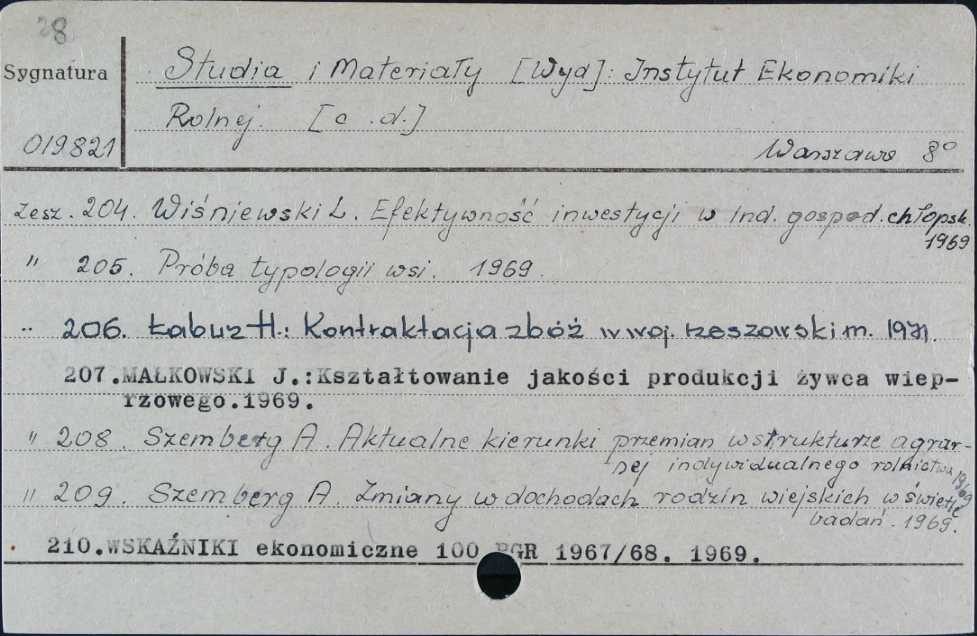 28
Sygnatura
019821
Studia i Materiały [Wyd]: Instytut Ekonomiki
Rolnej. [c.d.]
Warszawa 8°
Zesz. 204. Wiśniewski L. Efektywność inwestycji w ind. gospod. chłopsk.
1969
" 205. Próba typologii wsi. 1969.
" 206. Łabuz H.: Kontraktacja zbóż w woj. rzeszowskim. 1971.
207.MAŁKOWSKI J.:Kształtowanie jakości produkcji żywca wiep-
rzowego.1969.
" 208. Szemberg A. Aktualne kierunki przemian w strukturze agrar-
nej indywidualnego rolnictwa 1969
" 209. Szemberg A. Zmiany w dochodach rodzin wiejskich w świetle
badań. 1969.
210.WSKAŹNIKI ekonomiczne 100 PGR 1967/68. 1969.